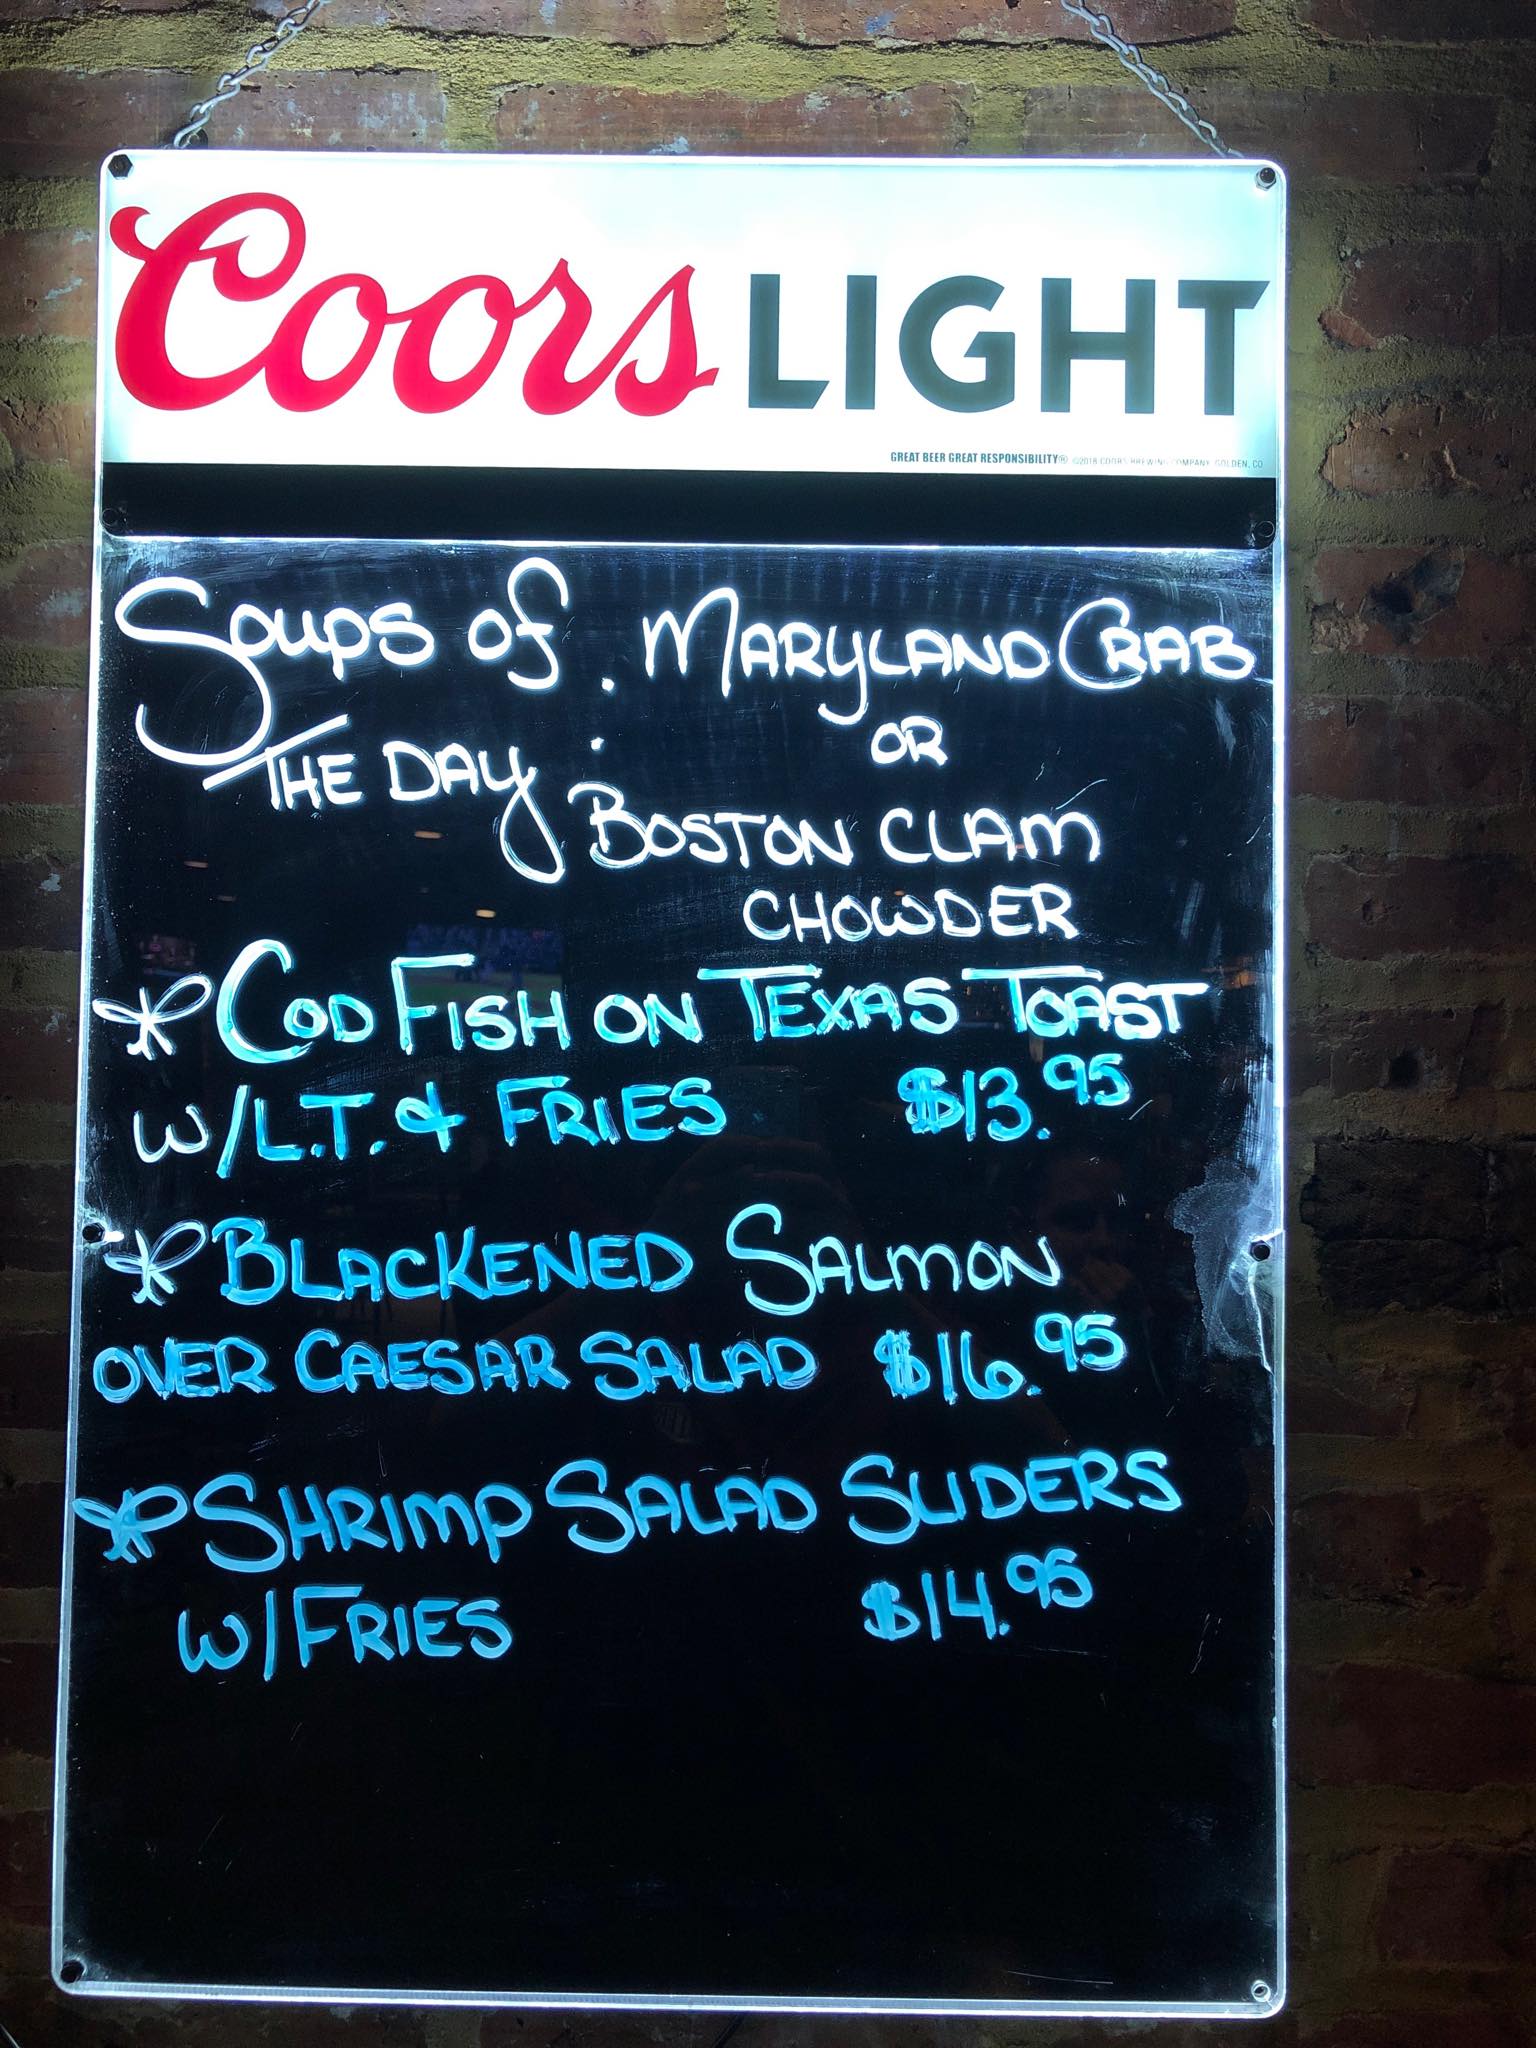 Coors LIGHT
GREAT BEER GREAT RESPONSIBILITY® ©2018 COORS BREWING COMPANY, GOLDEN, CO
SOUPS OF : MARYLAND CRAB
THE DAY OR
BOSTON CLAM
CHOWDER
COD FISH ON TEXAS TOAST
W/L.T. & FRIES $13.95
BLACKENED SALMON
OVER CAESAR SALAD $16.95
SHRIMP SALAD SLIDERS
W/FRIES $14.95